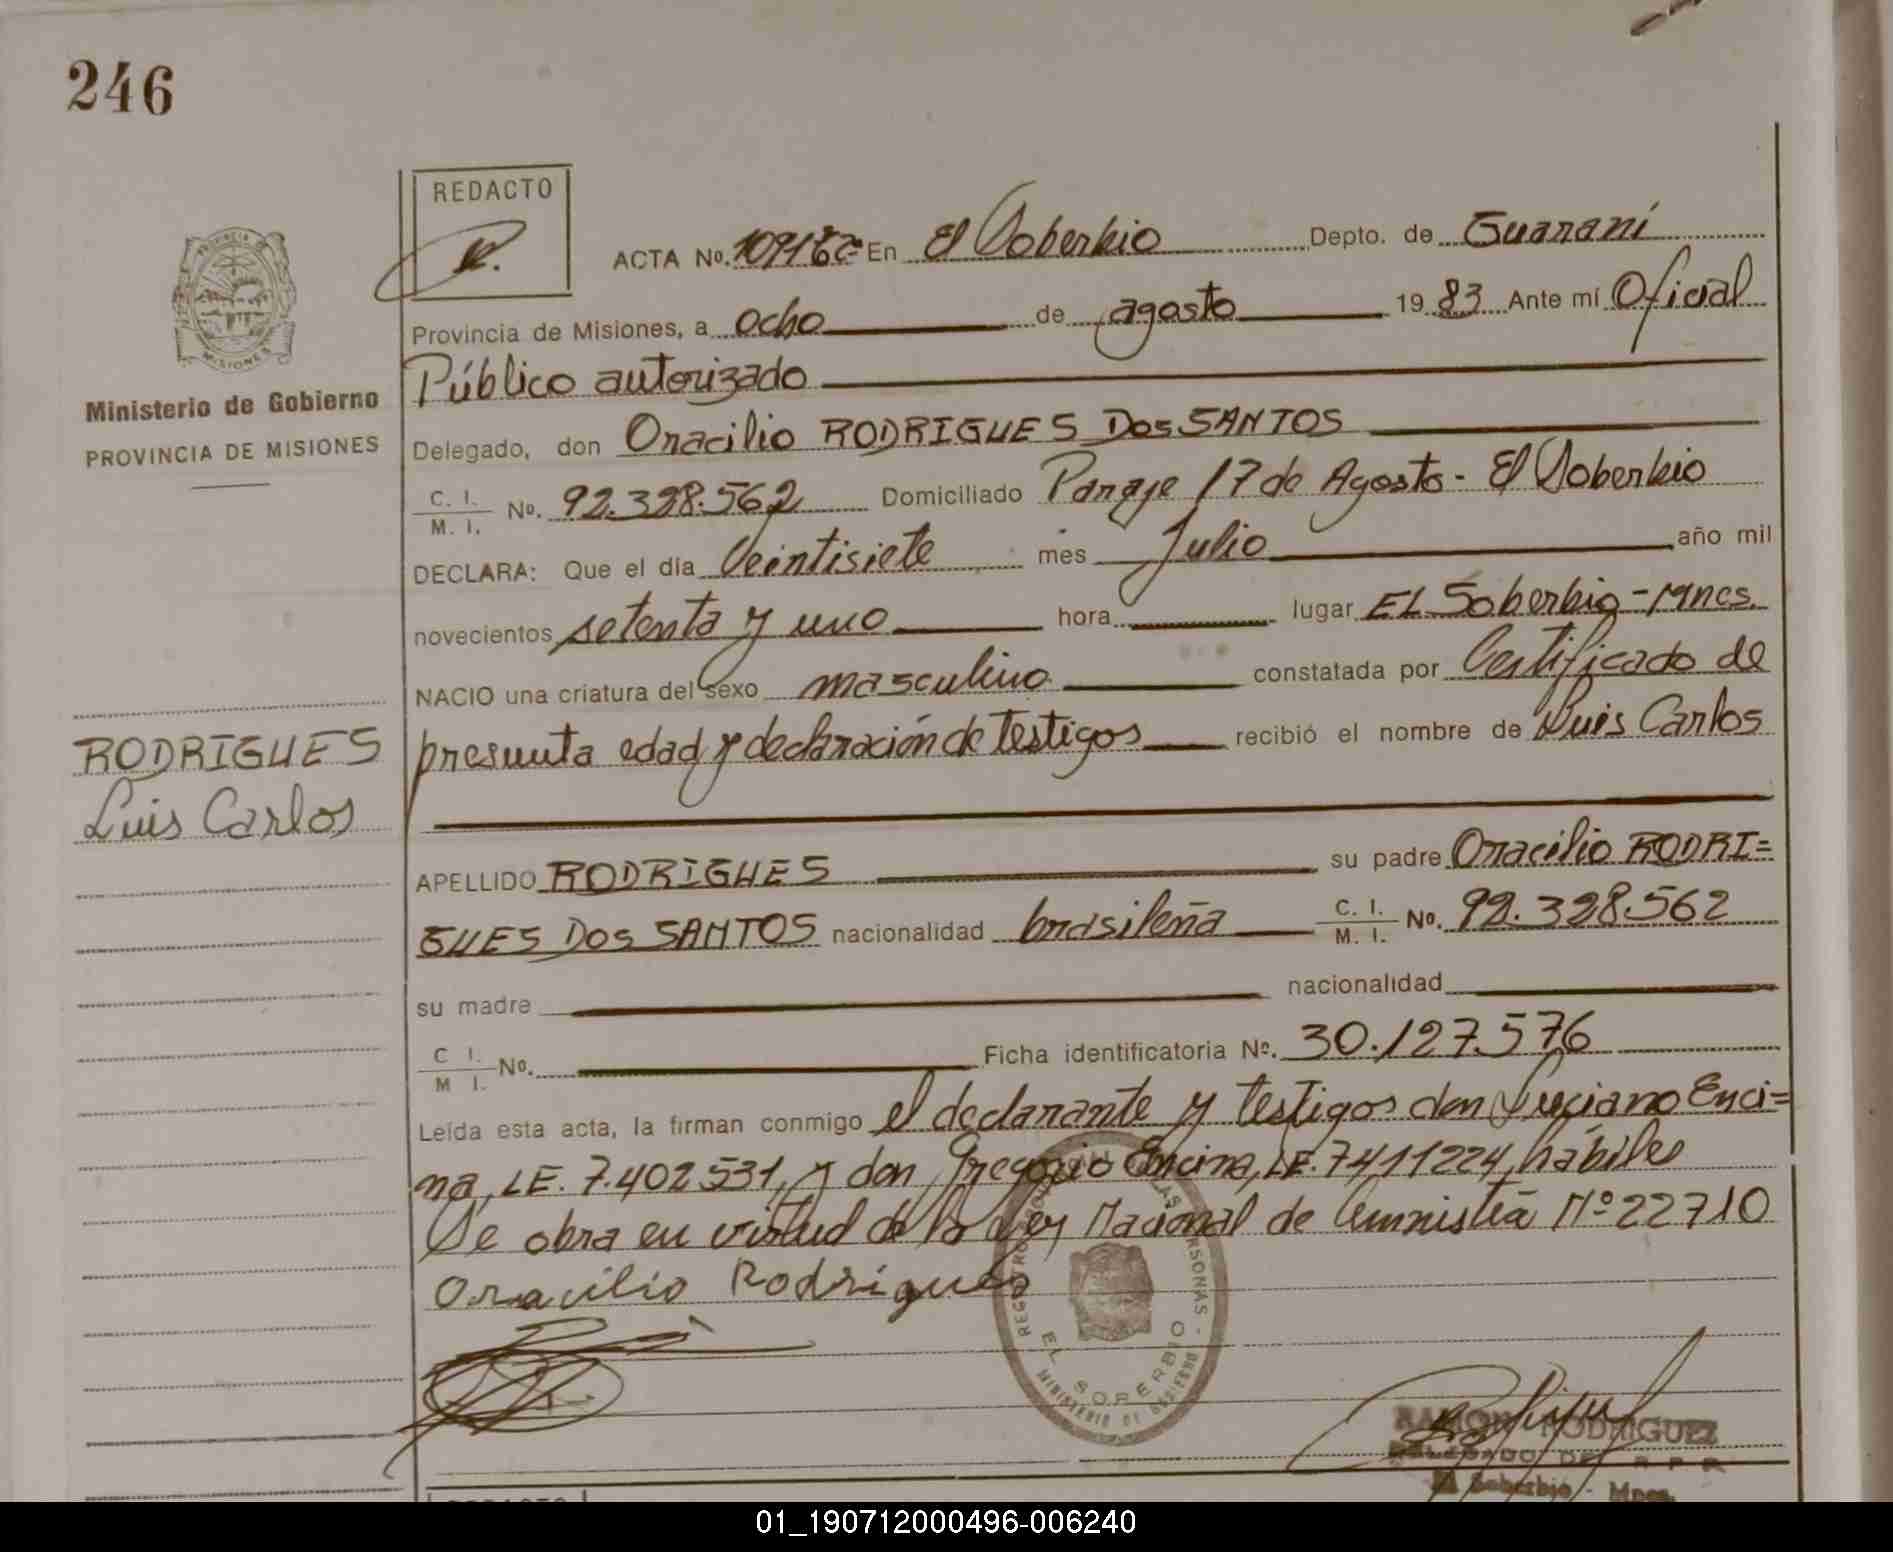 246
REDACTO
ACTA Nº. En El Soberbio Depto. de Guaraní
Provincia de Misiones, a ocho de agosto 1983 Ante mí Oficial
Público autorizado
Ministerio de Gobierno
PROVINCIA DE MISIONES
Delegado, don Oracilio RODRIGUES DOS SANTOS
C. I. / M. I. Nº. 92.328.562 Domiciliado Paraje 17 de Agosto - El Soberbio
DECLARA: Que el día Veintisiete mes Julio año mil
novecientos setenta y uno hora lugar EL Soberbio - Mnes.
NACIO una criatura del sexo masculino constatada por Certificado de
presunta edad y declaración de testigos recibió el nombre de Luis Carlos
RODRIGUES
Luis Carlos
APELLIDO RODRIGUES su padre Oracilio RODRI=
GUES DOS SANTOS nacionalidad brasileña C. I. / M. I. Nº. 92.328.562
su madre nacionalidad
C I. / M I. Nº. Ficha identificatoria Nº. 30.127.576
Leída esta acta, la firman conmigo el declarante y testigos don Luciano Enci=
na, LE. 7.402.531, y don Gregorio Encina, LE. 7411224, hábiles
Se obra en virtud de la Ley Nacional de Amnistía Nº 22710
Oracilio Rodrigues
EL SOBERBIO
MINISTERIO DE GOBIERNO
RAMON RODRIGUEZ
DELEGADO DEL R P P
El Soberbio - Mnes.
01_190712000496-006240